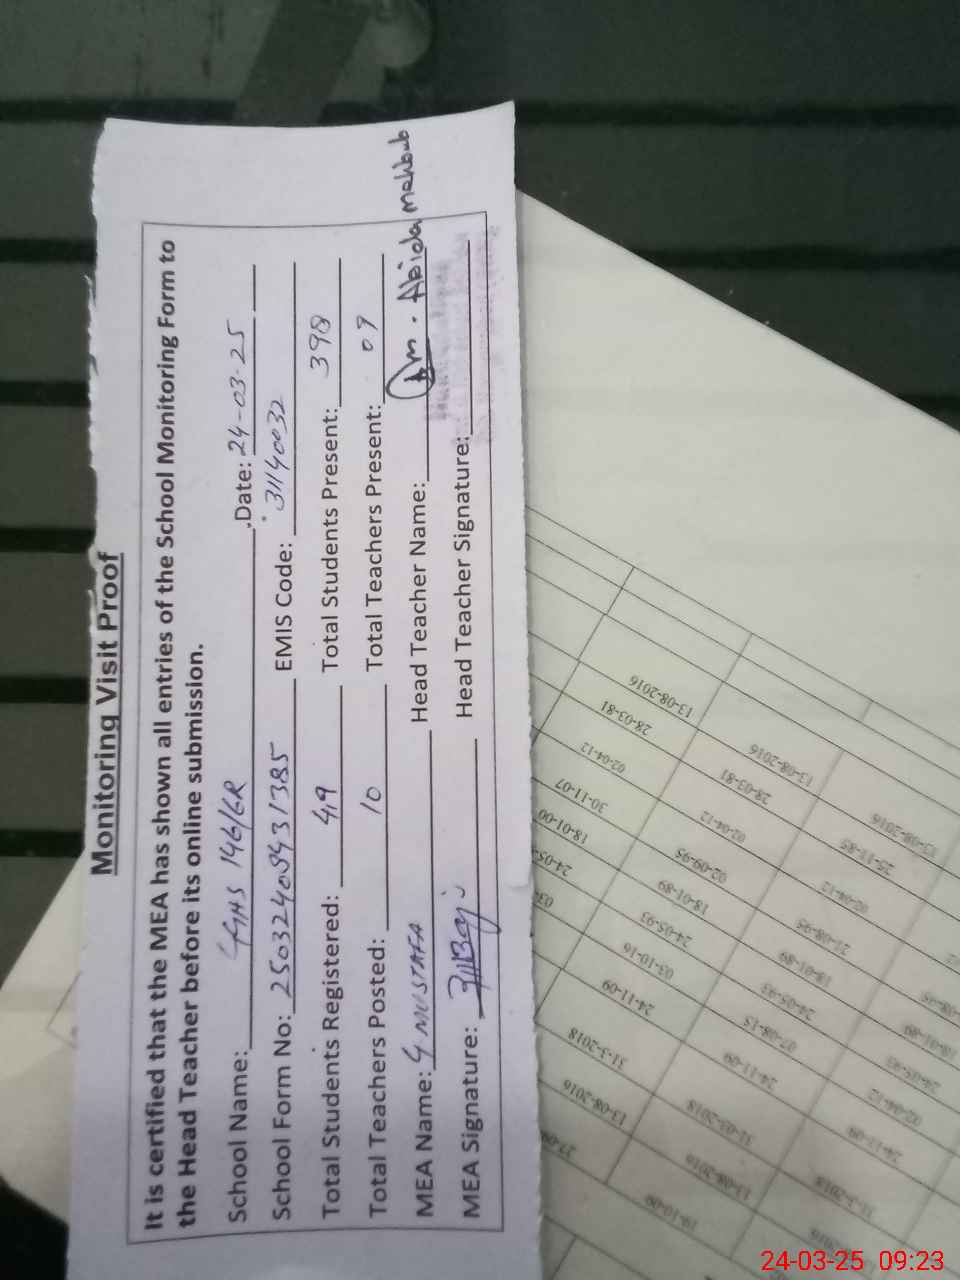 Monitoring Visit Proof
It is certified that the MEA has shown all entries of the School Monitoring Form to
the Head Teacher before its online submission.
School Name: GHS 146/6R Date: 24-03-25
School Form No: 250324094931385 EMIS Code: 31140032
Total Students Registered: 419 Total Students Present: 398
Total Teachers Posted: 10 Total Teachers Present: 09
MEA Name: G MUSTAFA Head Teacher Name: Abida Mehboob
MEA Signature: Head Teacher Signature:
13-08-2016
28-03-81
02-04-12
30-11-07
18-01-00
13-08-2016
28-03-81
02-04-12
02-09-95
18-01-89
24-05-93
03-10-16
24-11-09
31-3-2018
13-08-2016
13-08-2016
25-11-85
02-04-12
21-08-95
18-01-89
24-05-93
07-08-15
24-11-09
31-03-2018
13-08-2016
19-10-09
18-01-89
24-05-93
02-04-12
24-11-09
31-3-2018
24-03-25 09:23